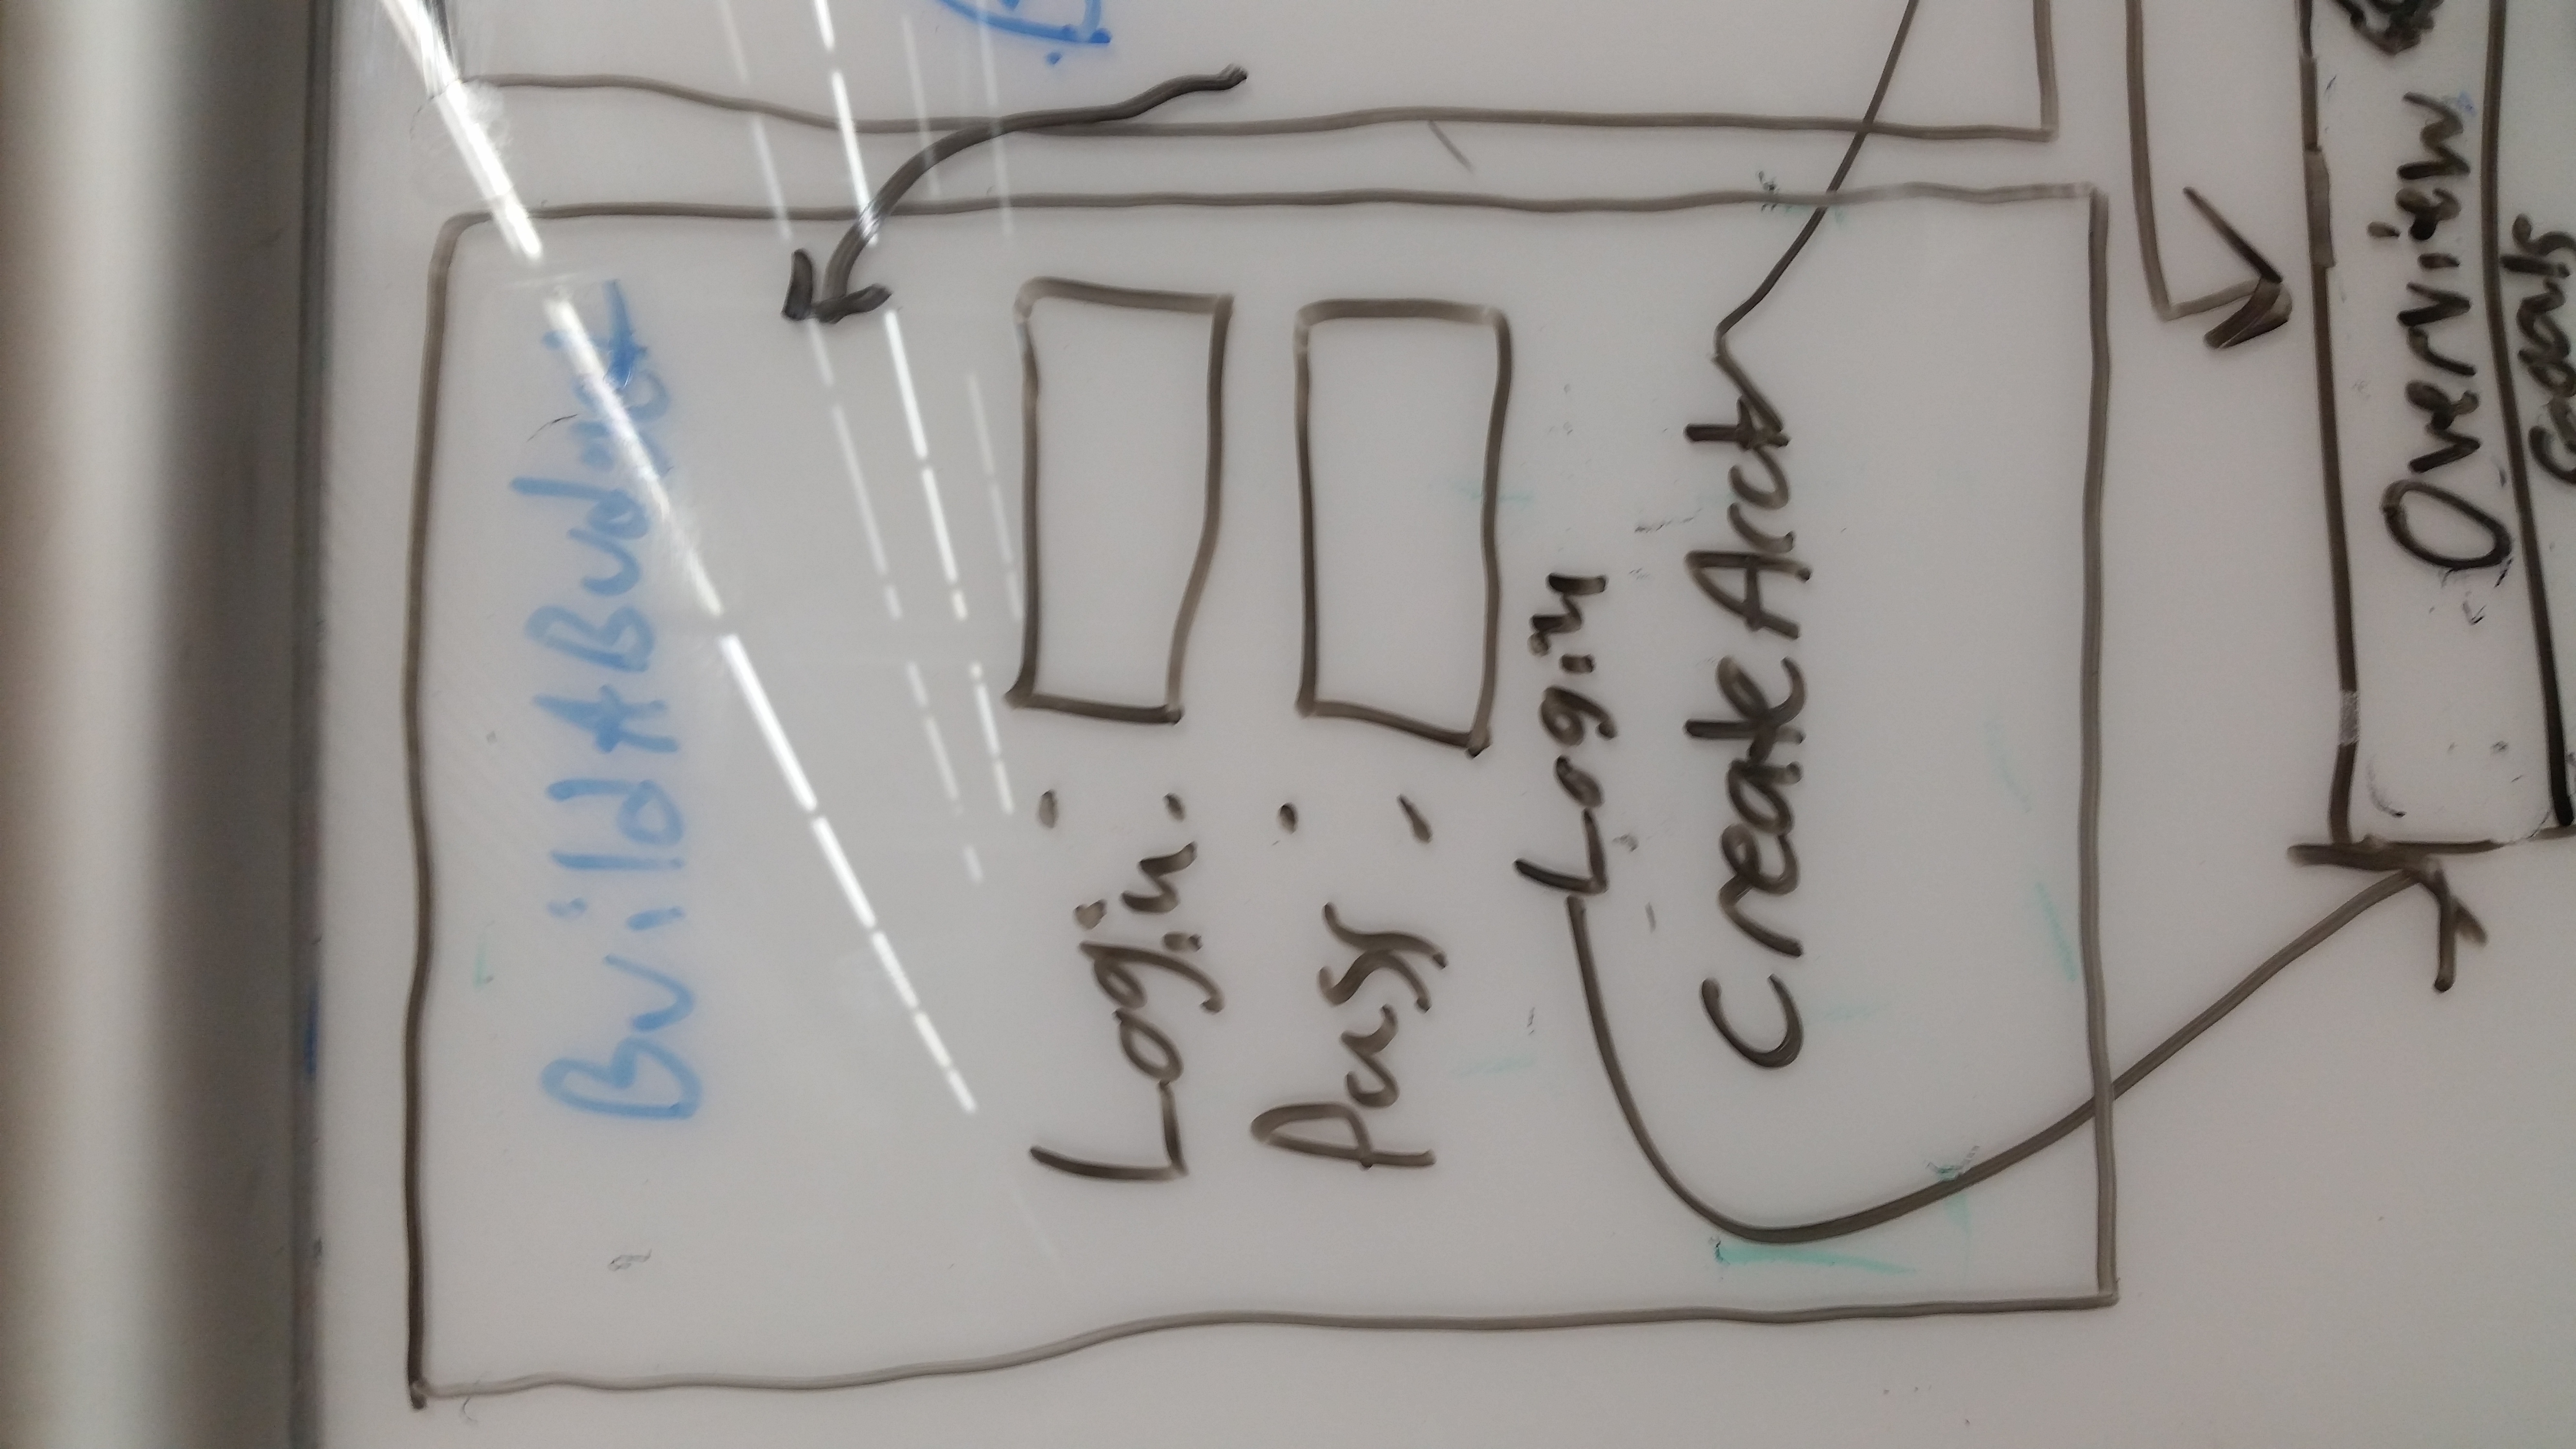 BuildABudget
Login:
Pass:
Login
Create Acct
Overview
Goals